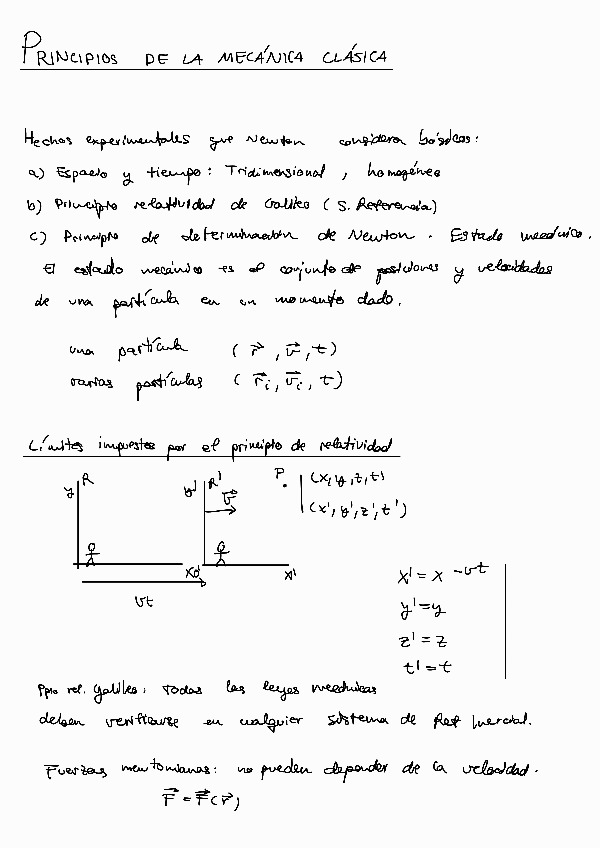 PRINCIPIOS DE LA MECÁNICA CLÁSICA
Hechos experimentales que Newton considera básicos:
a) Espacio y tiempo: Tridimensional, homogéneo
b) Principio relatividad de Galileo (S. Referencia)
c) Principio de determinación de Newton. Estado mecánico.
El estado mecánico es el conjunto de posiciones y velocidades
de una partícula en un momento dado.
una partícula (r⃗, v⃗, t)
varias partículas (r⃗ᵢ, v⃗ᵢ, t)
Límites impuestos por el principio de relatividad
y R y' R' v⃗ P. (x,y,z,t)
(x',y',z',t')
x o' x'
vt
x' = x - vt
y' = y
z' = z
t' = t
Ppio rel. Galileo: todas las leyes mecánicas
deben verificarse en cualquier sistema de Ref Inercial.
Fuerzas newtonianas: no pueden depender de la velocidad.
F⃗ = F⃗(r⃗)